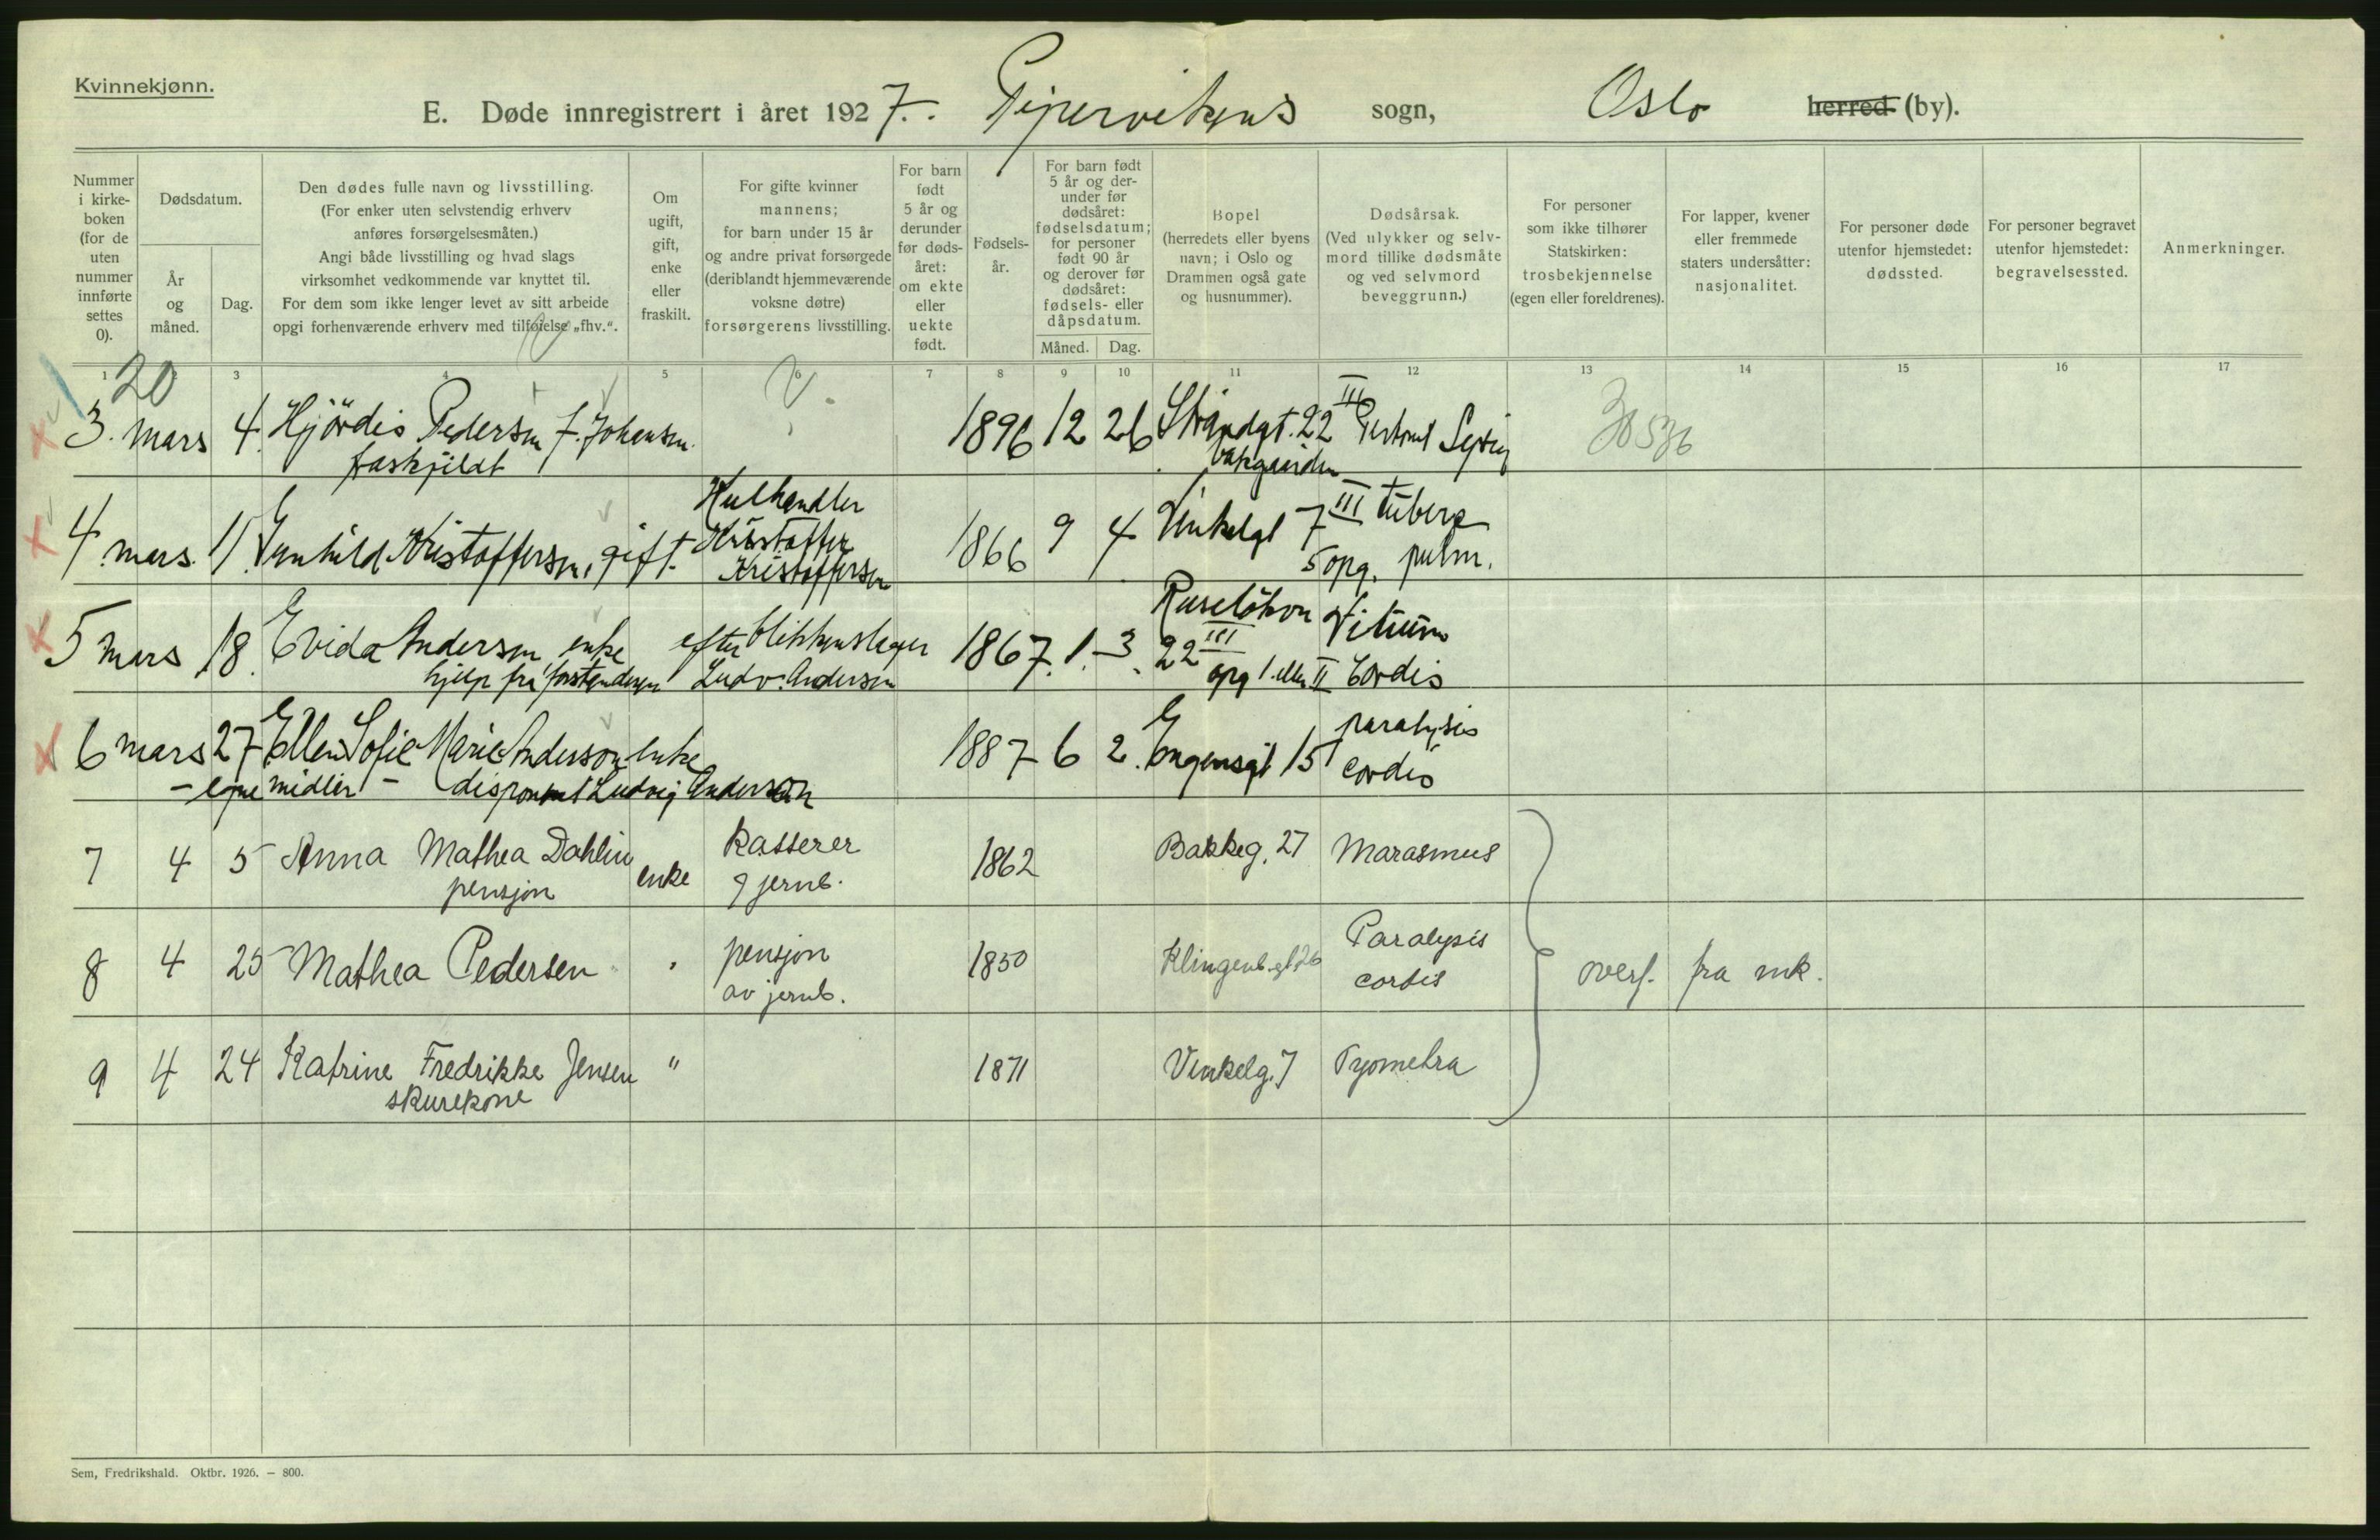 Kvinnekjønn.
E. Døde innregistrert i året 1927. Pipervikens sogn, Oslo herred (by).
Nummer i kirke-boken (for de uten nummer innførte settes 0).
Dødsdatum.
År og måned.
Dag.
Den dødes fulle navn og livsstilling.
(For enker uten selvstendig erhverv anføres forsørgelsesmåten.)
Angi både livsstilling og hvad slags virksomhet vedkommende var knyttet til.
For dem som ikke lenger levet av sitt arbeide opgi forhenværende erhverv med tilføielse „fhv.“.
Om ugift, gift, enke eller fraskilt.
For gifte kvinner mannens; for barn under 15 år og andre privat forsørgede (deriblandt hjemmeværende voksne døtre) forsørgerens livsstilling.
For barn født 5 år og derunder før døds-året: om ekte eller uekte født.
Fødsels-år.
For barn født 5 år og der-under før dødsåret: fødselsdatum; for personer født 90 år og derover før dødsåret: fødsels- eller dåpsdatum.
Måned. Dag.
Bopel (herredets eller byens navn; i Oslo og Drammen også gate og husnummer).
Dødsårsak. (Ved ulykker og selv-mord tillike dødsmåte og ved selvmord beveggrunn.)
For personer som ikke tilhører Statskirken: trosbekjennelse (egen eller foreldrenes).
For lapper, kvener eller fremmede staters undersåtter: nasjonalitet.
For personer døde utenfor hjemstedet: dødssted.
For personer begravet utenfor hjemstedet: begravelsessted.
Anmerkninger.
1 2 3 4 5 6 7 8 9 10 11 12 13 14 15 16 17
20
3. mars 4. Hjördis Pedersen f. Johansen. 1896 12 26 Strandgt. 22 III
fraskjildt bakgaarden
4 mars. 11 Gunhild Kristoffersen, gift. Kristoffer Kristoffersen 1866 9 4 Vinkelgt 7 III tuberc
5 opg. pulm.
5 mars 18. Evida Andersen enke efter blikkenslager 1867. 1. 3. Ruseløkvn 22 III Vitium
hjelp fra forstanderen Ludv. Andersen opg 1 eller II Cordis
6 mars 27 Ellen Sofie Marie Anderson enke 1887 6 2. Engensgt 15 paralysis cordis
- egne midler - disponent Ludvig Anderson
7 4 5 Anna Mathea Dahlin enke kasserer 1862 Bakkeg. 27 Marasmus
pensjon jernb.
8 4 25 Mathea Pedersen " pensjon 1850 Klingenb.gt 26 Paralysis
av jernb. cordis
overf. fra mk.
9 4 24 Katrine Fredrikke Jensen " 1871 Vinkelg. 7 Pyometra
skurekone
Sem, Fredrikshald. Oktbr. 1926. — 800.